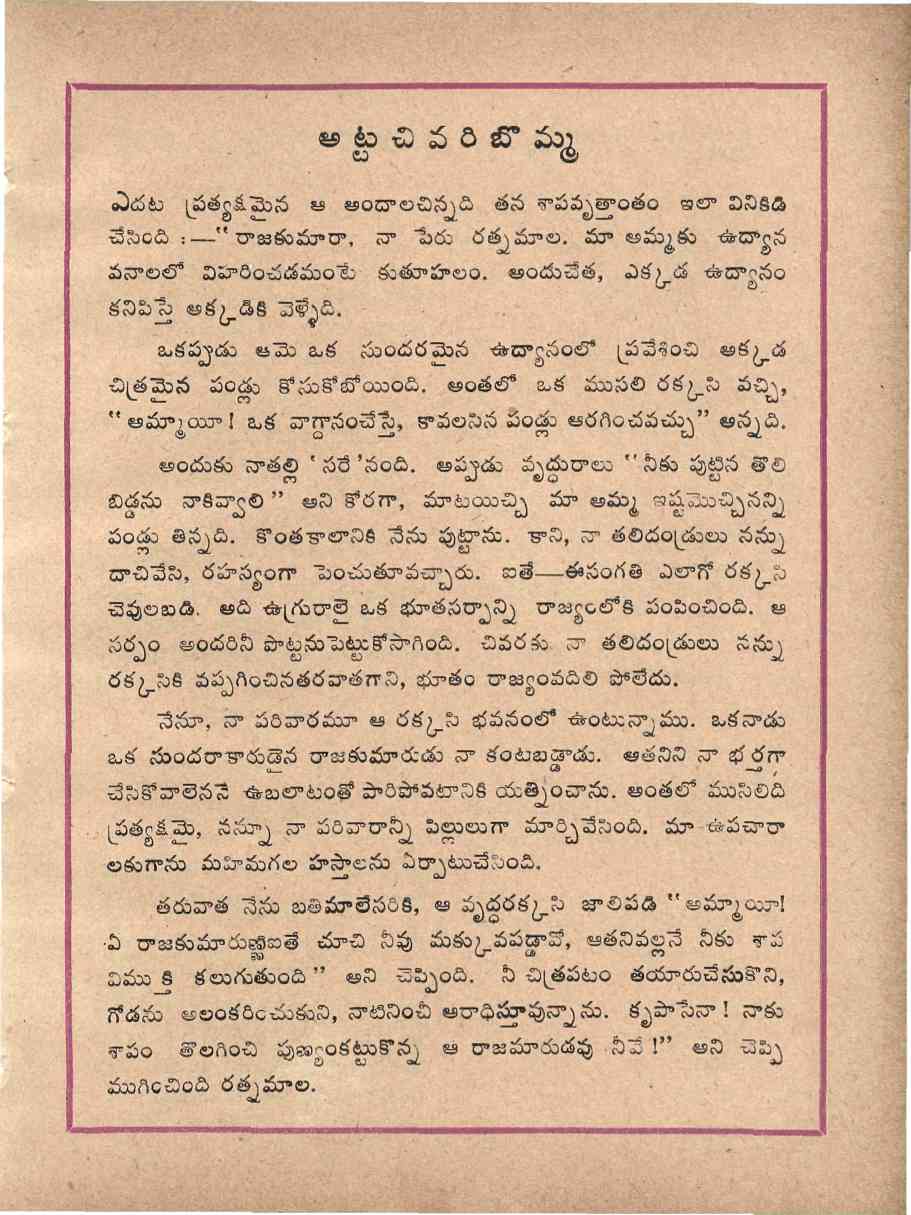 అట్టచివరిబొమ్మ
ఎదట ప్రత్యక్షమైన ఆ అందాలచిన్నది తన శాపవృత్తాంతం ఇలా వినికిడి
చేసింది :—“రాజకుమారా, నా పేరు రత్నమాల. మా అమ్మకు ఉద్యాన
వనాలలో విహరించడమంటే కుతూహలం. అందుచేత, ఎక్కడ ఉద్యానం
కనిపిస్తే అక్కడికి వెళ్ళేది.
ఒకప్పుడు ఆమె ఒక సుందరమైన ఉద్యానంలో ప్రవేశించి అక్కడ
చిత్రమైన పండ్లు కోసుకోబోయింది. అంతలో ఒక ముసలి రక్కసి వచ్చి,
“అమ్మాయీ! ఒక వాగ్దానంచేస్తే, కావలసిన పండ్లు ఆరగించవచ్చు” అన్నది.
అందుకు నాతల్లి ‘సరే’నంది. అప్పుడు వృద్ధురాలు “నీకు పుట్టిన తొలి
బిడ్డను నాకివ్వాలి” అని కోరగా, మాటయిచ్చి మా అమ్మ ఇష్టమొచ్చినన్ని
పండ్లు తిన్నది. కొంతకాలానికి నేను పుట్టాను. కాని, నా తలిదండ్రులు నన్ను
దాచివేసి, రహస్యంగా పెంచుతూవచ్చారు. ఐతే—ఈసంగతి ఎలాగో రక్కసి
చెవులబడి. అది ఉగ్రురాలై ఒక భూతసర్పాన్ని రాజ్యంలోకి పంపించింది. ఆ
సర్పం అందరినీ పొట్టనుపెట్టుకోసాగింది. చివరకు నా తలిదండ్రులు నన్ను
రక్కసికి వప్పగించినతరవాతగాని, భూతం రాజ్యంవదిలి పోలేదు.
నేనూ, నా పరివారమూ ఆ రక్కసి భవనంలో ఉంటున్నాము. ఒకనాడు
ఒక సుందరాకారుడైన రాజకుమారుడు నా కంటబడ్డాడు. ఆతనిని నా భర్తగా
చేసికోవాలెననే ఉబలాటంతో పారిపోవటానికి యత్నించాను. అంతలో ముసిలిది
ప్రత్యక్షమై, నన్నూ నా పరివారాన్నీ పిల్లులుగా మార్చివేసింది. మా ఉపచారా
లకుగాను మహిమగల హస్తాలను ఏర్పాటుచేసింది.
తరువాత నేను బతిమాలేసరికి, ఆ వృద్ధరక్కసి జాలిపడి “అమ్మాయీ!
ఏ రాజకుమారుణ్ణిఐతే చూచి నీవు మక్కువపడ్డావో, ఆతనివల్లనే నీకు శాప
విముక్తి కలుగుతుంది” అని చెప్పింది. నీ చిత్రపటం తయారుచేసుకొని,
గోడను అలంకరించుకుని, నాటినించీ ఆరాధిస్తూవున్నాను. కృపాసేనా! నాకు
శాపం తొలగించి పుణ్యంకట్టుకొన్న ఆ రాజమారుడవు నీవే!” అని చెప్పి
ముగించింది రత్నమాల.